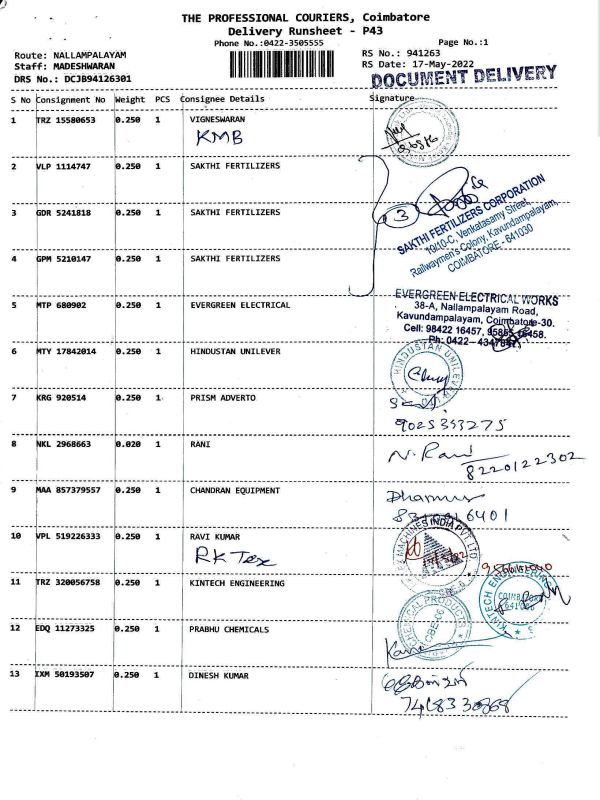 THE PROFESSIONAL COURIERS, Coimbatore
Delivery Runsheet - P43
Phone No.:0422-3505555
Page No.:1
Route: NALLAMPALAYAM
Staff: MADESHWARAN
DRS No.: DCJB94126301
RS No.: 941263
RS Date: 17-May-2022
DOCUMENT DELIVERY
S No Consignment No Weight PCS Consignee Details Signature
1 TRZ 15580653 0.250 1 VIGNESWARAN
KMB
2 VLP 1114747 0.250 1 SAKTHI FERTILIZERS
3 GDR 5241818 0.250 1 SAKTHI FERTILIZERS
3
SAKTHI FERTILIZERS CORPORATION
10/10-C, Venkatasamy Street,
Railwaymen's Colony, Kavundampalayam,
COIMBATORE - 641030
4 GPM 5210147 0.250 1 SAKTHI FERTILIZERS
5 MTP 680902 0.250 1 EVERGREEN ELECTRICAL
EVERGREEN ELECTRICAL WORKS
38-A, Nallampalayam Road,
Kavundampalayam, Coimbatore-30.
Cell: 98422 16457, 16458.
Ph: 0422 -
6 MTY 17842014 0.250 1 HINDUSTAN UNILEVER
HINDUSTAN UNILEVER
7 KRG 920514 0.250 1 PRISM ADVERTO
9025353275
8 NKL 2968663 0.020 1 RANI
N. Rani
8220122302
9 MAA 857379557 0.250 1 CHANDRAN EQUIPMENT
6401
10 VPL 519226333 0.250 1 RAVI KUMAR
RK Tex
MACHINES INDIA PVT. LTD
11 TRZ 320056758 0.250 1 KINTECH ENGINEERING
KINTECH ENGINEERING
12 EDQ 11273325 0.250 1 PRABHU CHEMICALS
CHEMICAL PRODUCTS
CBE-06
13 IXM 50193507 0.250 1 DINESH KUMAR